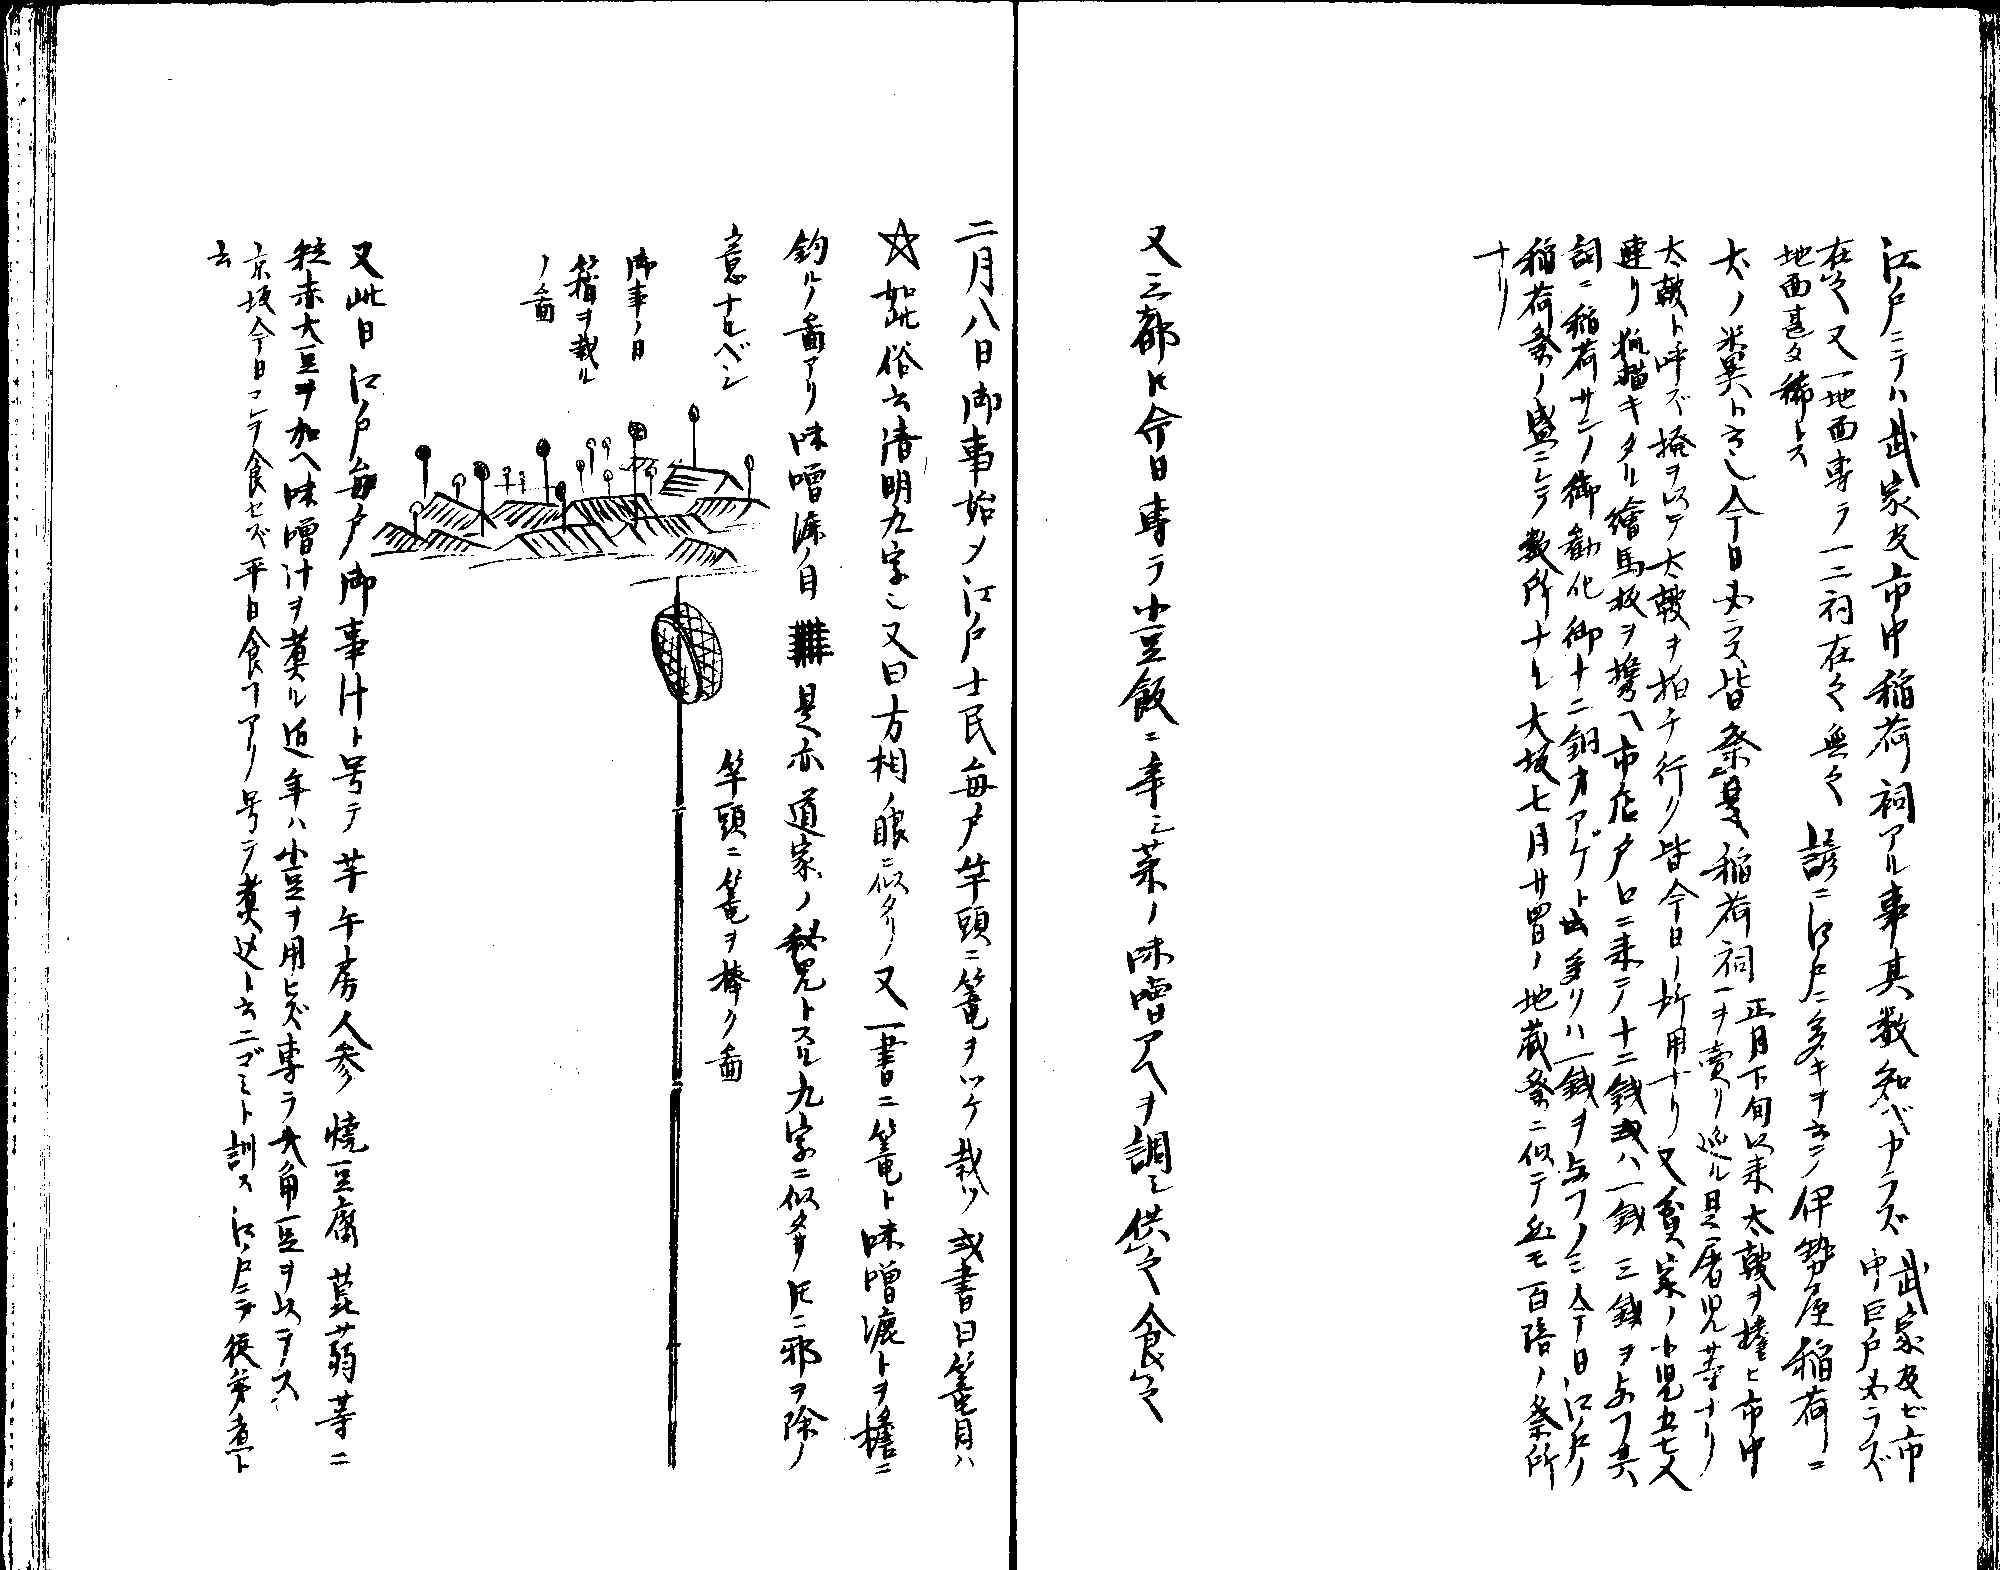 江戸ニテハ武家及市中稲荷祠アル事其数知ベカラズ 武家及ビ市
中巨戸必ラズ
在之又一地面専ラ一二祠在之無之
地面甚タ稀トス
諺ニ江戸ニ多キヲ云テ伊勢屋稲荷ニ
犬ノ糞ト云也今日必ラズ皆祭之
稲荷祠ヲ賣リ巡ル是屠児等ナリ
正月下旬以来太鼓ヲ擔ヒ市中
太鼓ト呼ズ撥ヲ以テ太鼓ヲ拍チ行ク皆今日ノ所用ナリ又貧家ノ小児五七人
連リ狐描キタル繪馬板ヲ携ヘ市店戸口ニ来テ十二銭或ハ一銭三銭ヲ与フ其
詞ニ稲荷サンノ御勧化御十二銅オアゲト云多クハ一銭ヲ与フノミ今日江戸ノ
稲荷祭ノ盛ニシテ数所ナル大坂七月廿四日ノ地蔵祭ニ似テ而モ百陪ノ祭所
ナリ
又三都トモ今日専ラ小豆飯ニ辛シ菜ノ味噌アヘヲ調シ供之食之
二月八日御事始メ江戸士民毎戸竿頭ニ篭ヲツケ栽ツ或書曰篭目ハ
☆如此俗云清明九字也又曰方相ノ眼ニ似タリ又一書ニ篭ト味噌漉トヲ檐ニ
釣ルノ畫アリ味噌漉ノ目卌是亦道家ノ秘呪トスル九字ニ似タリトモニ邪ヲ除ノ
意ナルベシ
御事ノ日
籠ヲ栽ル
ノ畫
竿頭ニ篭ヲ棒ク畫
又此日江戸毎戸御事汁ト号テ芋午房人参焼豆腐菎蒻等ニ
粒赤大豆ヲ加ヘ味噌汁ヲ煮ル近年ハ小豆ヲ用ヒズ専ラ大角豆ヲ以テス
京坂今日コレヲ食セズ平日食フアリ号テ煮込ト云ニゴミト訓ス江戸ニテ従弟煮ト
云